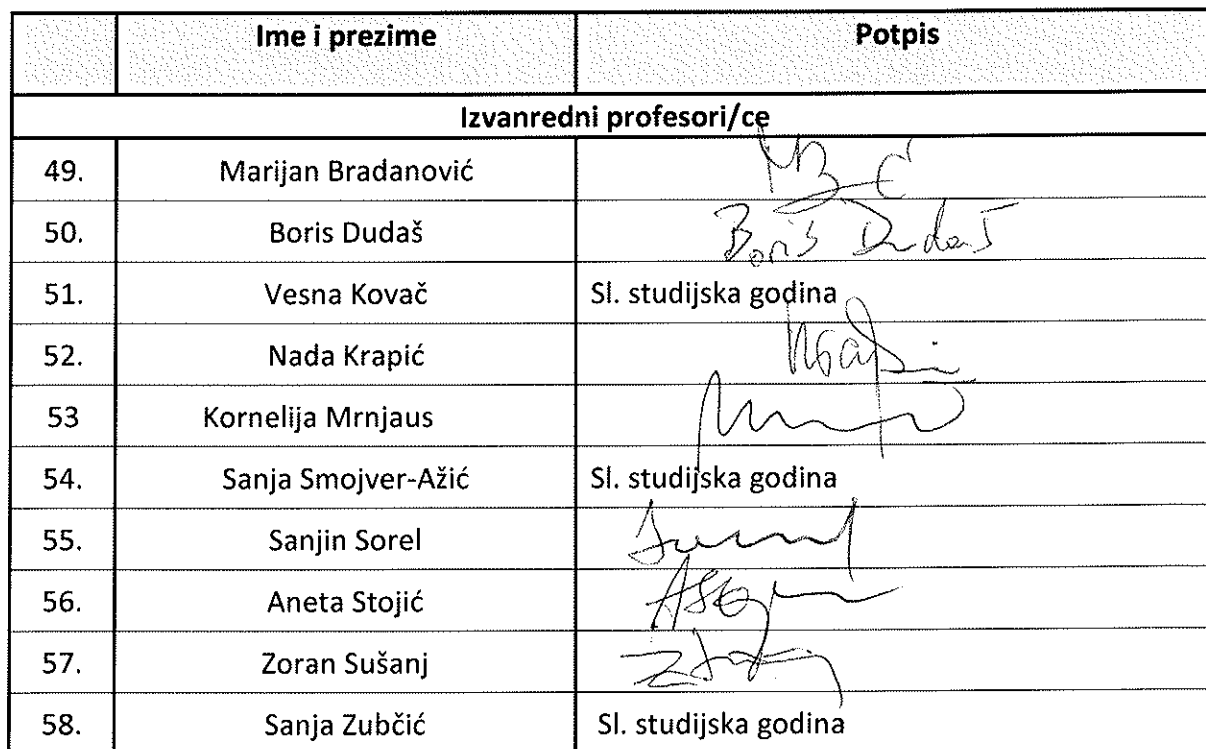 Ime i prezime Potpis
Izvanredni profesori/ce
49. Marijan Bradanović
50. Boris Dudaš Boris Dudaš
51. Vesna Kovač Sl. studijska godina
52. Nada Krapić
53 Kornelija Mrnjaus
54. Sanja Smojver-Ažić Sl. studijska godina
55. Sanjin Sorel
56. Aneta Stojić
57. Zoran Sušanj
58. Sanja Zubčić Sl. studijska godina